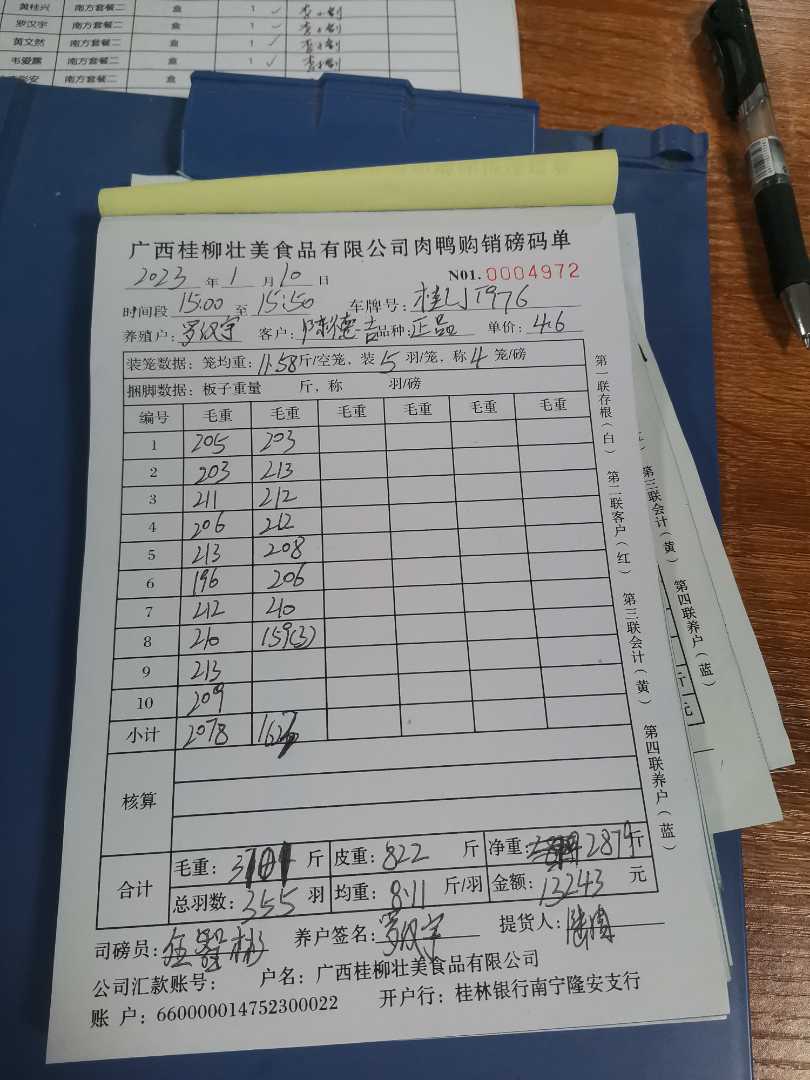 黄桂兴 南方套餐二 盒 1 ✓
罗汉宇 南方套餐二 盒 1 ✓
黄文然 南方套餐二 盒 1 ✓
韦爱露 南方套餐二 盒 1 ✓
安 南方套餐二 盒
广西桂柳壮美食品有限公司肉鸭购销磅码单
2023 年 1 月 10 日 N01. 0004972
时间段 15:00 至 15:50 车牌号: T976
养殖户: 罗汉宇 客户: 陈德吉 品种: 正品 单价: 4.6
装笼数据: 笼均重: 11.58 斤/空笼, 装 5 羽/笼, 称 4 笼/磅
捆脚数据: 板子重量 斤, 称 羽/磅
编号 毛重 毛重 毛重 毛重 毛重 毛重
1 205 203
2 203 213
3 211 212
4 206 212
5 213 208
6 196 206
7 212 210
8 210 159(3)
9 213
10 209
小计 2078 162
核算
合计 毛重: 斤 皮重: 822 斤 净重: 2879 斤
总羽数: 355 羽 均重: 8.11 斤/羽 金额: 13243 元
司磅员: 养户签名: 罗汉宇 提货人:
公司汇款账号: 户名: 广西桂柳壮美食品有限公司
账 户: 660000014752300022 开户行: 桂林银行南宁隆安支行
第一联存根(白) 第二联客户(红) 第三联会计(黄) 第四联养户(蓝)
第三联会计(黄) 第四联养户(蓝)
斤
元